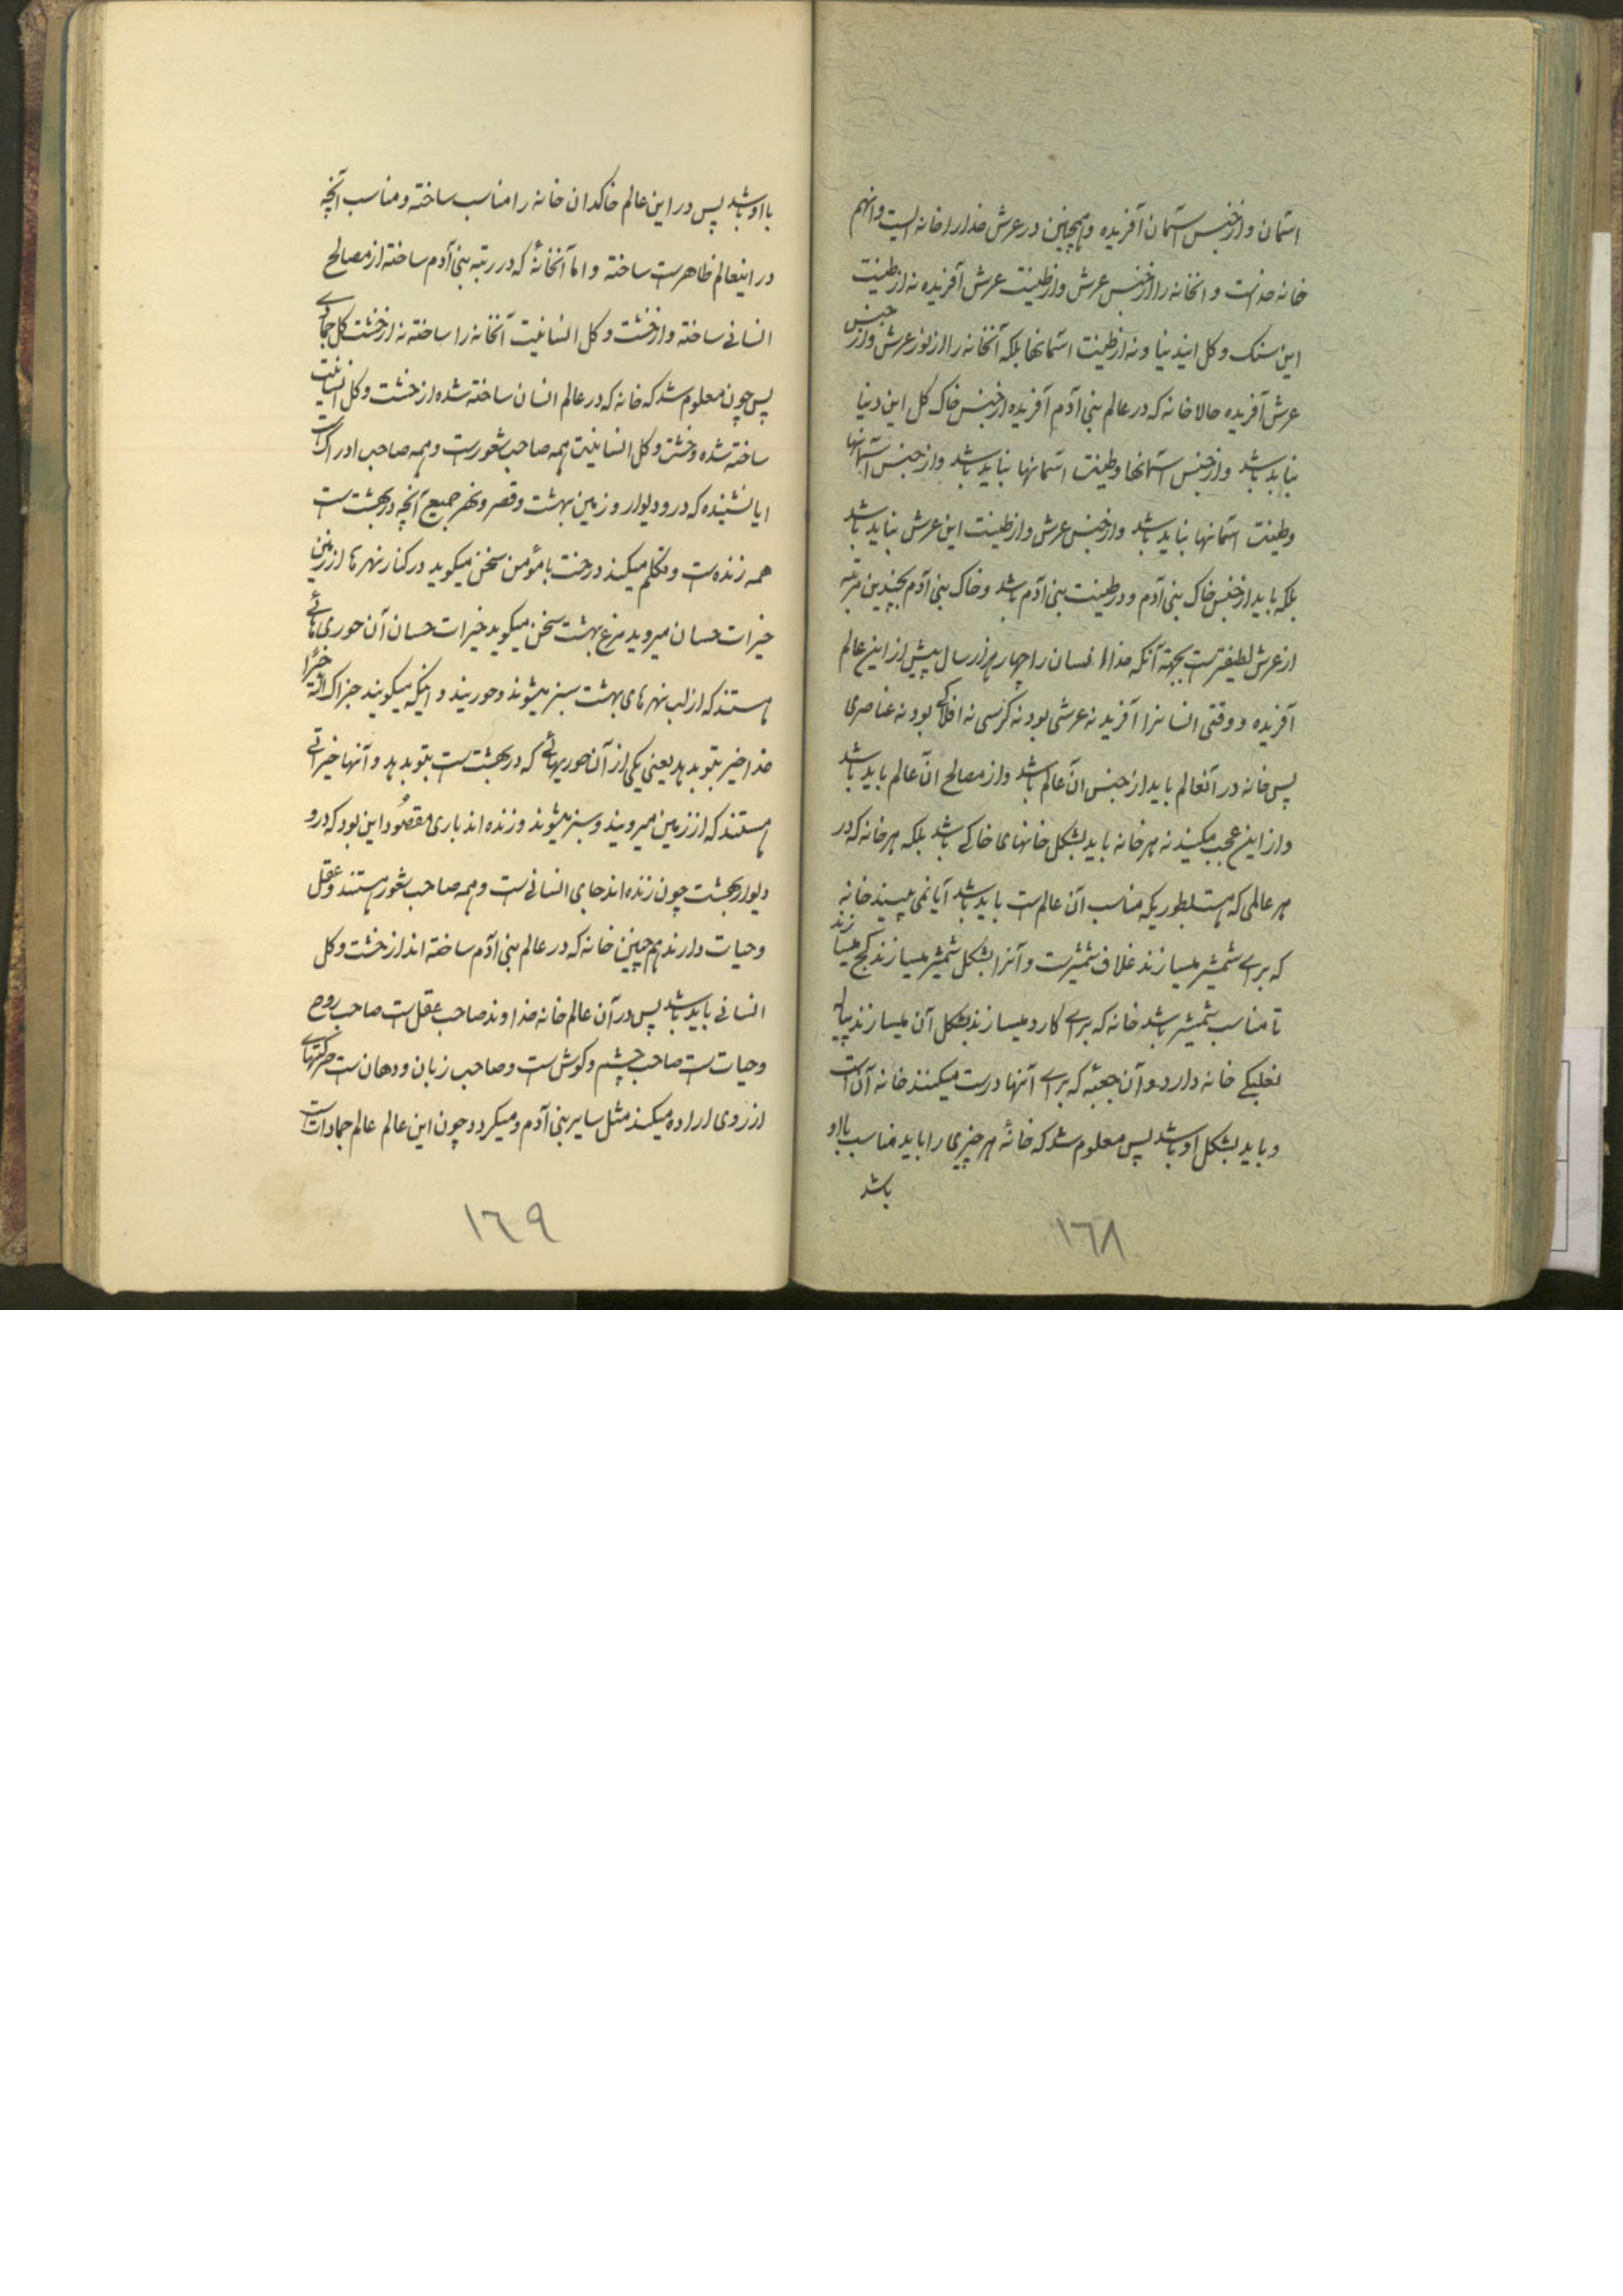 استمان و از جنس استمان آفریده و همچنین در عرش خدا را خانه ایست و انهم
خانه خداست و انخانه را از جنس عرش و از طینت عرش آفریده نه از طینت
این سنک و کل ایندنیا و نه از طینت استمانها بلکه آنخانه را از نور عرش و از جنس
عرش آفریده حالا خانه که در عالم بنی آدم آفریده از جنس خاک کل این دنیا
نباید باشد و از جنس استمانها و طینت استمانها نباید باشد و از جنس آسمانها
و طینت استمانها نباید باشد و از جنس عرش و از طینت این عرش نباید باشد
بلکه باید از جنس خاک بنی آدم و در طینت بنی آدم باشد و خاک بنی آدم بچندین مرتبه
از عرش لطیفترست بجهة آنکه خدا انسان را چهار هزار سال پیش از این عالم
آفریده و وقتی انسانرا آفرید نه عرشی بود نه کرسی نه افلاکی بود نه عناصری
پس خانه در آنعالم باید از جنس آن عالم باشد و از مصالح آن عالم باید باشد
و از این عجب مکنید نه هر خانه باید بشکل خانهای خاکی باشد بلکه هر خانه که در
هر عالمی که هست بطوریکه مناسب آن عالمست باید باشد آیا نمی بینید خانه
که برای شمشیر میسازند غلاف شمشیرست و آنرا بشکل شمشیر میسازند کج میسازند
تا مناسب شمشیر باشد خانه که برای کارد میسازند بشکل آن میسازند پیاله
نعلبکی خانه دارد و آن جعبهٔ که برای آنها درست میکنند خانه آن است
و باید بشکل او باشد پس معلوم شد که خانهٔ هر چیزی را باید مناسب با او
باشد
١٦٨
با او باشد پس در این عالم خاکدان خانه را مناسب ساخته و مناسب آنچه
در اینعالم ظاهرست ساخته و اما آنخانهٔ که در رتبه بنی آدم ساخته از مصالح
انسانی ساخته و از خشت و کل انسانیت آنخانه را ساخته نه از خشت کل جمادی
پس چون معلوم شد که خانه که در عالم انسان ساخته شده از خشت و کل انسانیت
ساخته شده و خشت و کل انسانیت همه صاحب شعورست و همه صاحب ادراک است
ایا نشنیده که در و دیوار و زمین بهشت و قصر و نهر جمیع آنچه در بهشت ست
همه زنده ست و تکلم میکند درخت با مؤمن سخن میکوید در کنار نهرها از زمین
خیرات حسان میروید مرغ بهشت سخن میکوید خیرات حسان آن حوری هائی
هستند که از لب نهرهای بهشت سبز میشوند و حورینند و اینکه میکویند جزاک الله خیرا
خدا خیر بتو بدهد یعنی یکی از آن حوریهائی که در بهشت ست بتو بدهد و آنها خیراتی
هستند که از زمین میرویند و سبز میشوند و زنده اند باری مقصود این بود که در و
دیوار بهشت چون زنده اند جای انسانی ست و همه صاحب شعور هستند و عقل
و حیات دارند هم چنین خانه که در عالم بنی آدم ساخته اند از خشت و کل
انسانی باید باشد پس در آن عالم خانه خداوند صاحب عقل ست صاحب روح
و حیات ست صاحب چشم و کوش ست و صاحب زبان و دهان ست حرکتهای
از روی اراده میکند مثل سایر بنی آدم و میکردد چون این عالم عالم جمادات است
١٦٩